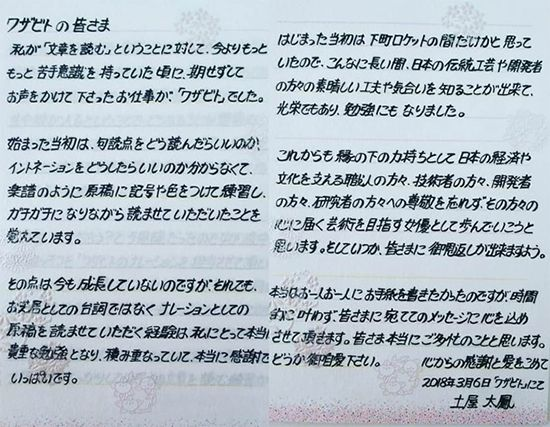 ワザビトの皆さま
私が「文章を読む」ということに対して、今よりもっと
もっと苦手意識を持っていた頃に、期せずして
お声をかけて下さったお仕事が、「ワザビト」でした。
始まった当初は、句読点をどう読んだらいいのか、
イントネーションをどうしたらいいのか分からなくて、
楽譜のように原稿に記号や色をつけて練習し、
ガチガチになりながら読ませていただいたことを
覚えています。
その点は今も成長していないのですが、それでも、
お芝居としての台詞ではなくナレーションとしての
原稿を読ませていただく経験は、私にとって本当に
貴重な勉強となり、積み重なっていて、本当に感謝で
いっぱいです。
はじまった当初は下町ロケットの間だけかと思って
いたので、こんなに長い間、日本の伝統工芸や開発者
の方々の素晴しい工夫や気合いを知ることが出来て、
光栄でもあり、勉強にもなりました。
これからも縁の下の力持ちとして日本の経済や
文化を支える職人の方々、技術者の方々、開発者
の方々、研究者の方々への尊敬を忘れずその方々の
心に届く芸術を目指す女優として歩んでいこうと
思います。そしていつか、皆さまに御恩返しが出来ますよう。
本当はお一人お一人にお手紙を書きたかったのですが、時間
的に叶わず、皆さまに宛ててのメッセージに心を込め
させて頂きます。皆さま本当にご多忙のことと思います。
どうか御自愛下さい。
心からの感謝と愛をこめて
2018年3月6日「ワザビト」にて
土屋 太鳳